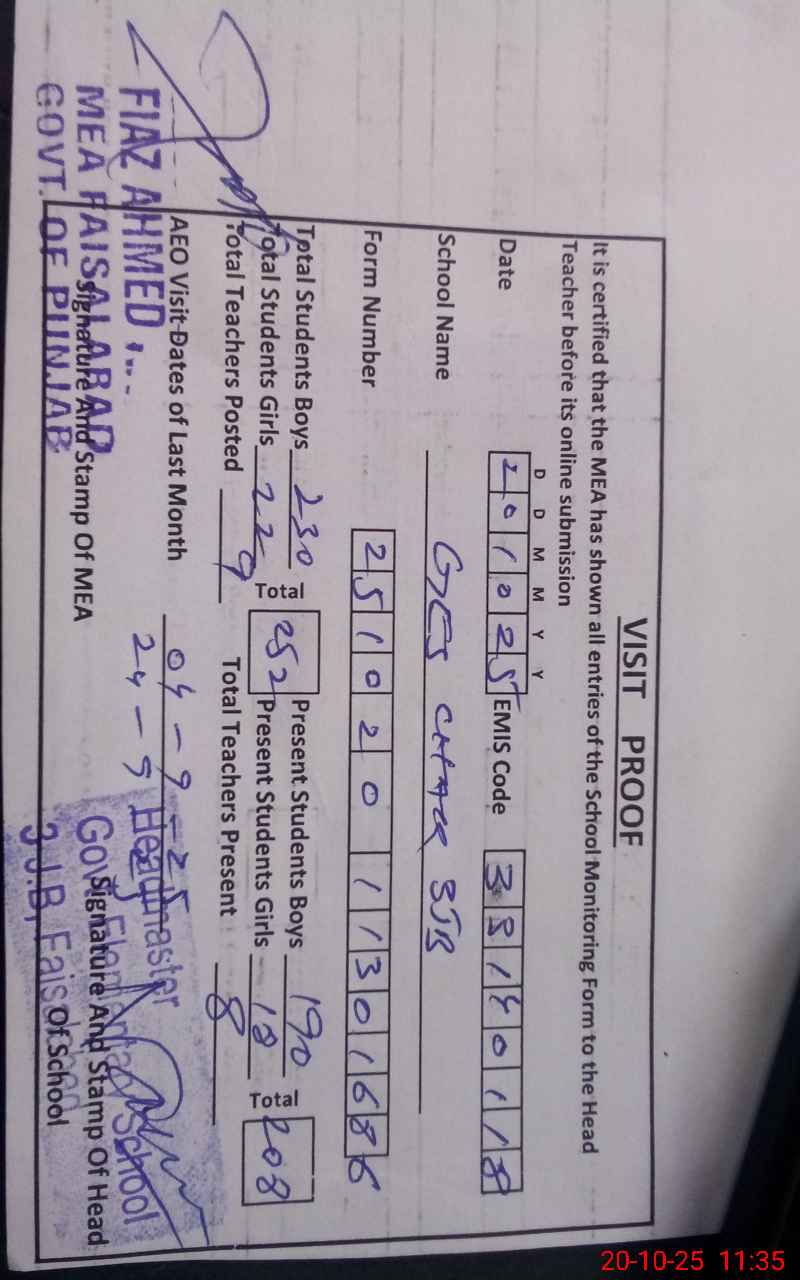 VISIT PROOF
It is certified that the MEA has shown all entries of the School Monitoring Form to the Head
Teacher before its online submission
D D M M Y Y
Date 201025 EMIS Code 33140118
School Name GES CHAK 3JB
Form Number 25102011301686
Total Students Boys 230 Present Students Boys 190
Total Students Girls 22 Total 252 Present Students Girls 18 Total 208
Total Teachers Posted 9 Total Teachers Present 8
AEO Visit Dates of Last Month 04-9-25
24-9
FIAZ AHMED
MEA FAISALABAD
GOVT. OF PUNJAB
Signature And Stamp Of MEA
Headmaster
Govt Elementary School
3 J.B, Faisalabad
Signature And Stamp Of Head
Of School
20-10-25 11:35